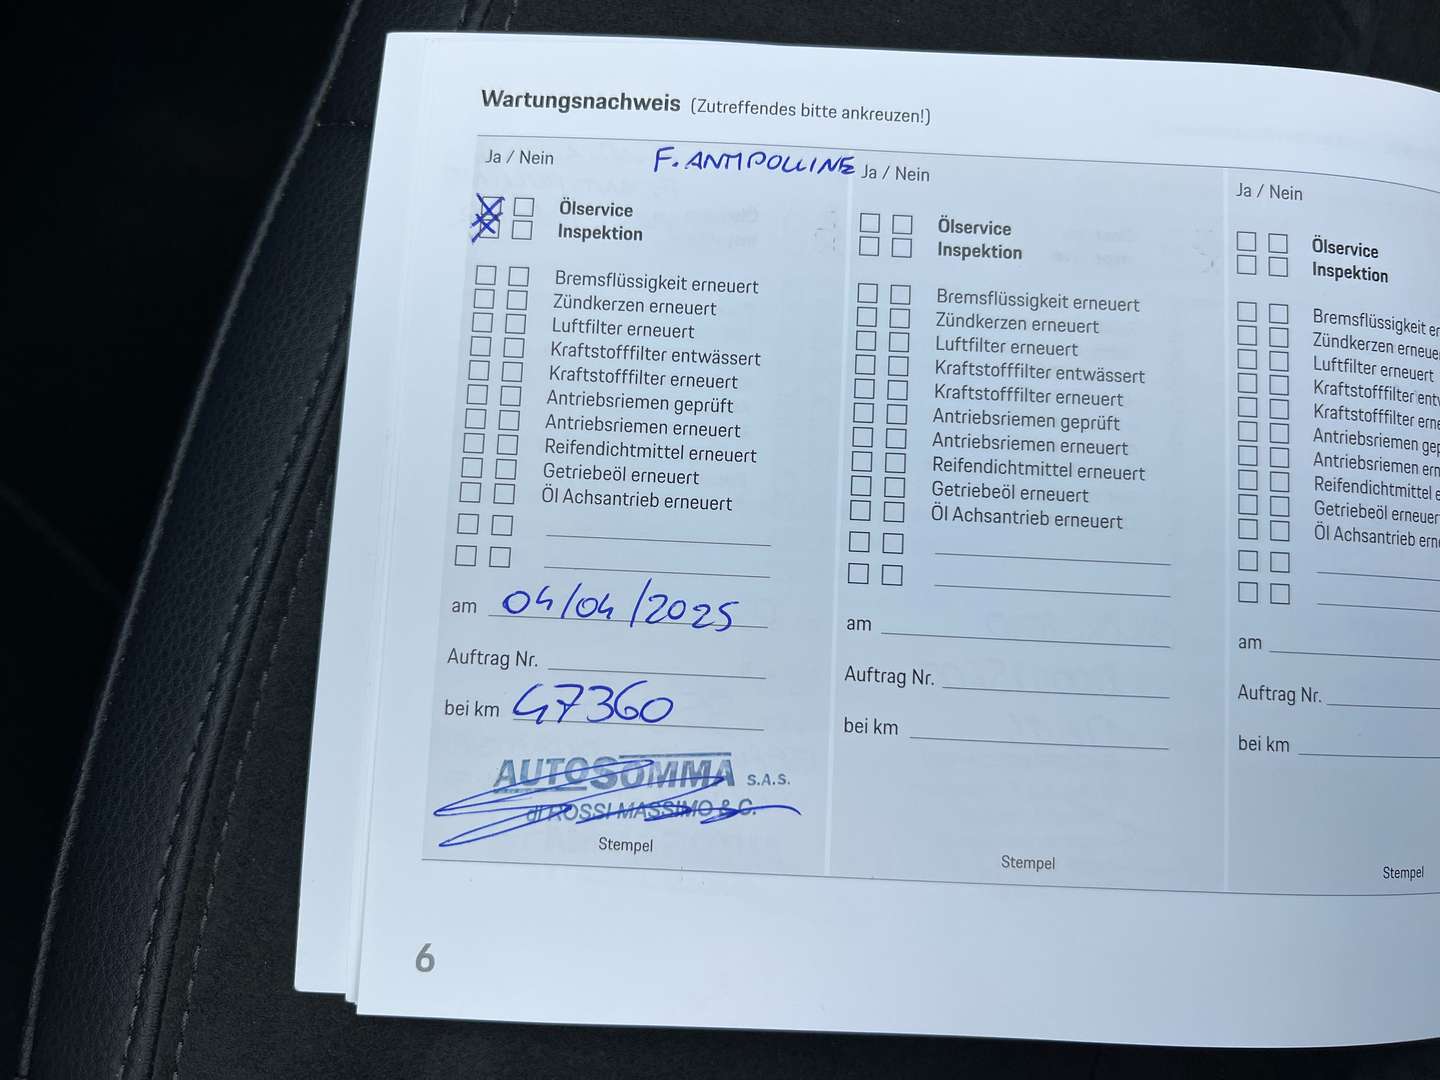 Wartungsnachweis (Zutreffendes bitte ankreuzen!)
Ja / Nein
F. ANTIPOLLINE
Ölservice
Inspektion
Bremsflüssigkeit erneuert
Zündkerzen erneuert
Luftfilter erneuert
Kraftstofffilter entwässert
Kraftstofffilter erneuert
Antriebsriemen geprüft
Antriebsriemen erneuert
Reifendichtmittel erneuert
Getriebeöl erneuert
Öl Achsantrieb erneuert
am 04/04/2025
Auftrag Nr.
bei km 47360
AUTOSOMMA S.A.S.
di ROSSI MASSIMO & C.
Stempel
Ja / Nein
Ölservice
Inspektion
Bremsflüssigkeit erneuert
Zündkerzen erneuert
Luftfilter erneuert
Kraftstofffilter entwässert
Kraftstofffilter erneuert
Antriebsriemen geprüft
Antriebsriemen erneuert
Reifendichtmittel erneuert
Getriebeöl erneuert
Öl Achsantrieb erneuert
am
Auftrag Nr.
bei km
Stempel
Ja / Nein
Ölservice
Inspektion
Bremsflüssigkeit er
Zündkerzen erneue
Luftfilter erneuert
Kraftstofffilter entw
Kraftstofffilter erne
Antriebsriemen gep
Antriebsriemen ern
Reifendichtmittel e
Getriebeöl erneuer
Öl Achsantrieb ern
am
Auftrag Nr.
bei km
Stempel
6